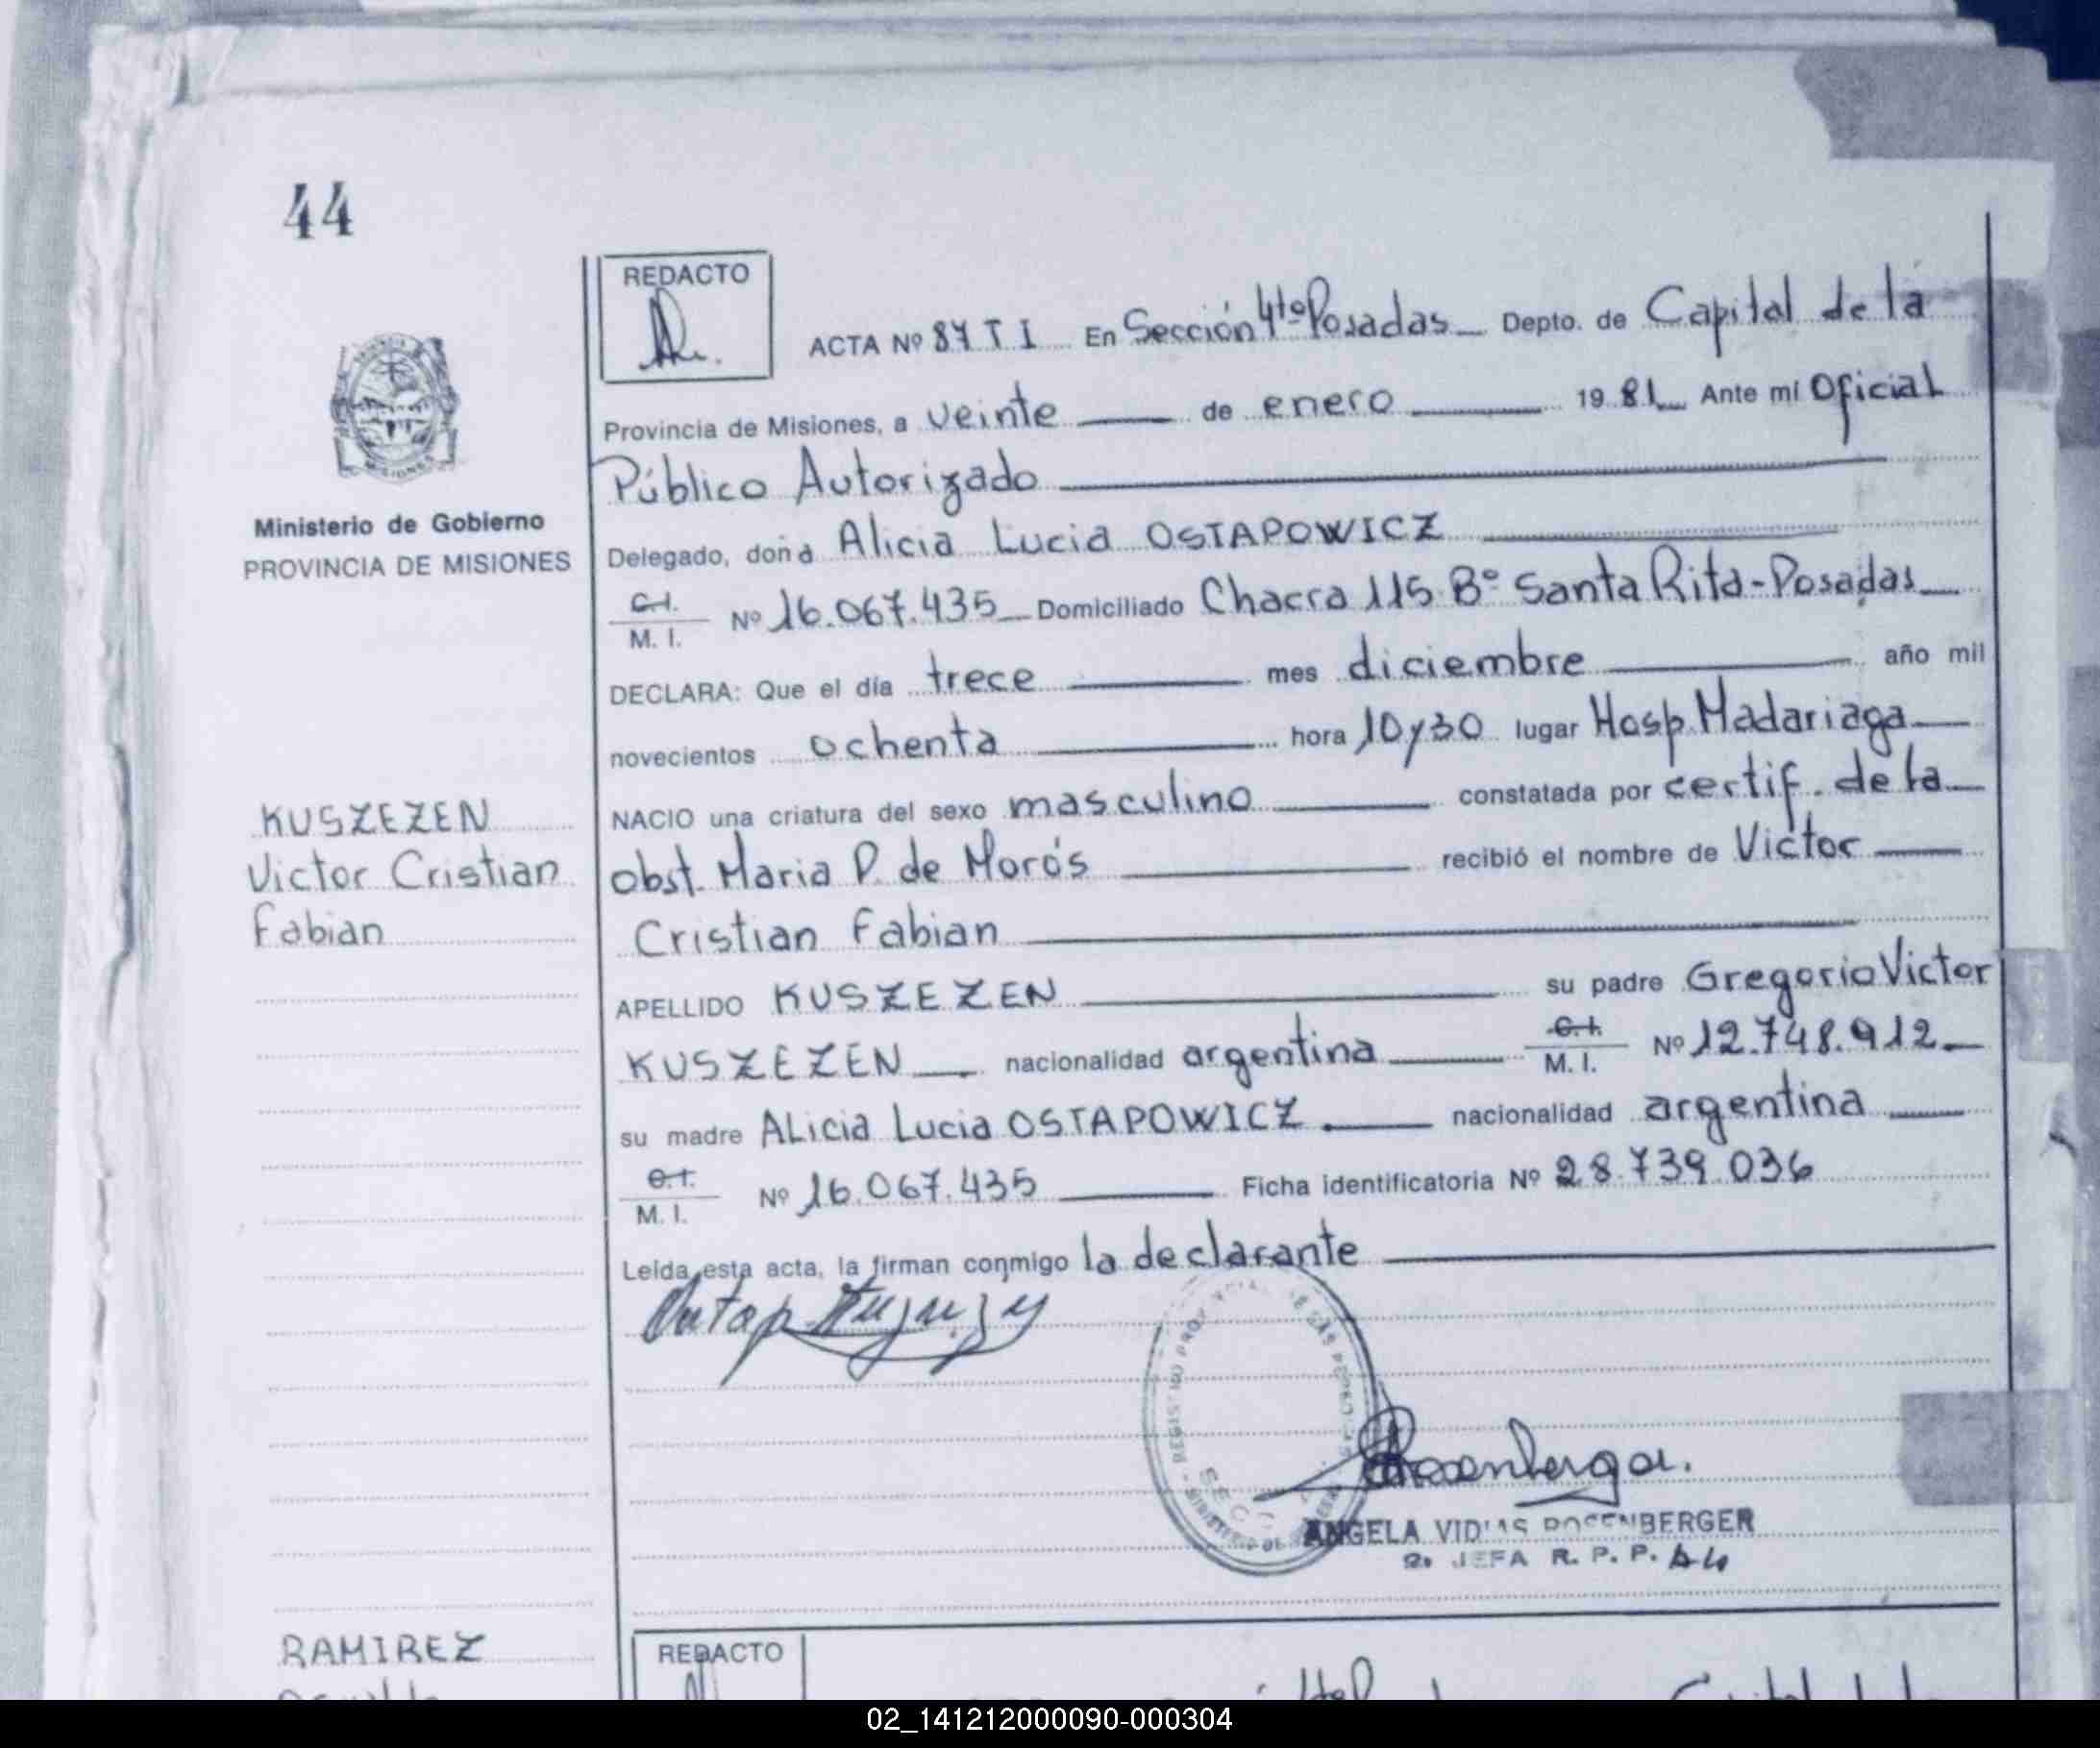 44
REDACTO
ACTA Nº 87 T I En Sección 4tº Posadas Depto. de Capital de la
Provincia de Misiones, a veinte de enero 19 81 Ante mí Oficial
Público Autorizado
Ministerio de Gobierno
PROVINCIA DE MISIONES
Delegado, doña Alicia Lucia OSTAPOWICZ
C.I.
M. I. Nº 16.067.435 Domiciliado Chacra 115 Bº Santa Rita-Posadas
DECLARA: Que el día trece mes diciembre año mil
novecientos ochenta hora 10y30 lugar Hosp. Madariaga
KUSZEZEN
Victor Cristian
Fabian
NACIO una criatura del sexo masculino constatada por certif. de la
obst. Maria P. de Morós recibió el nombre de Victor
Cristian Fabian
APELLIDO KUSZEZEN su padre Gregorio Victor
KUSZEZEN nacionalidad argentina C.I.
M. I. Nº 12.748.912
su madre ALicia Lucia OSTAPOWICZ nacionalidad argentina
C.I.
M. I. Nº 16.067.435 Ficha identificatoria Nº 28.739.036
Leída esta acta, la firman conmigo la declarante
ANGELA ROSENBERGER
2. JEFA R. P. P.
RAMIREZ
REDACTO
02_141212000090-000304